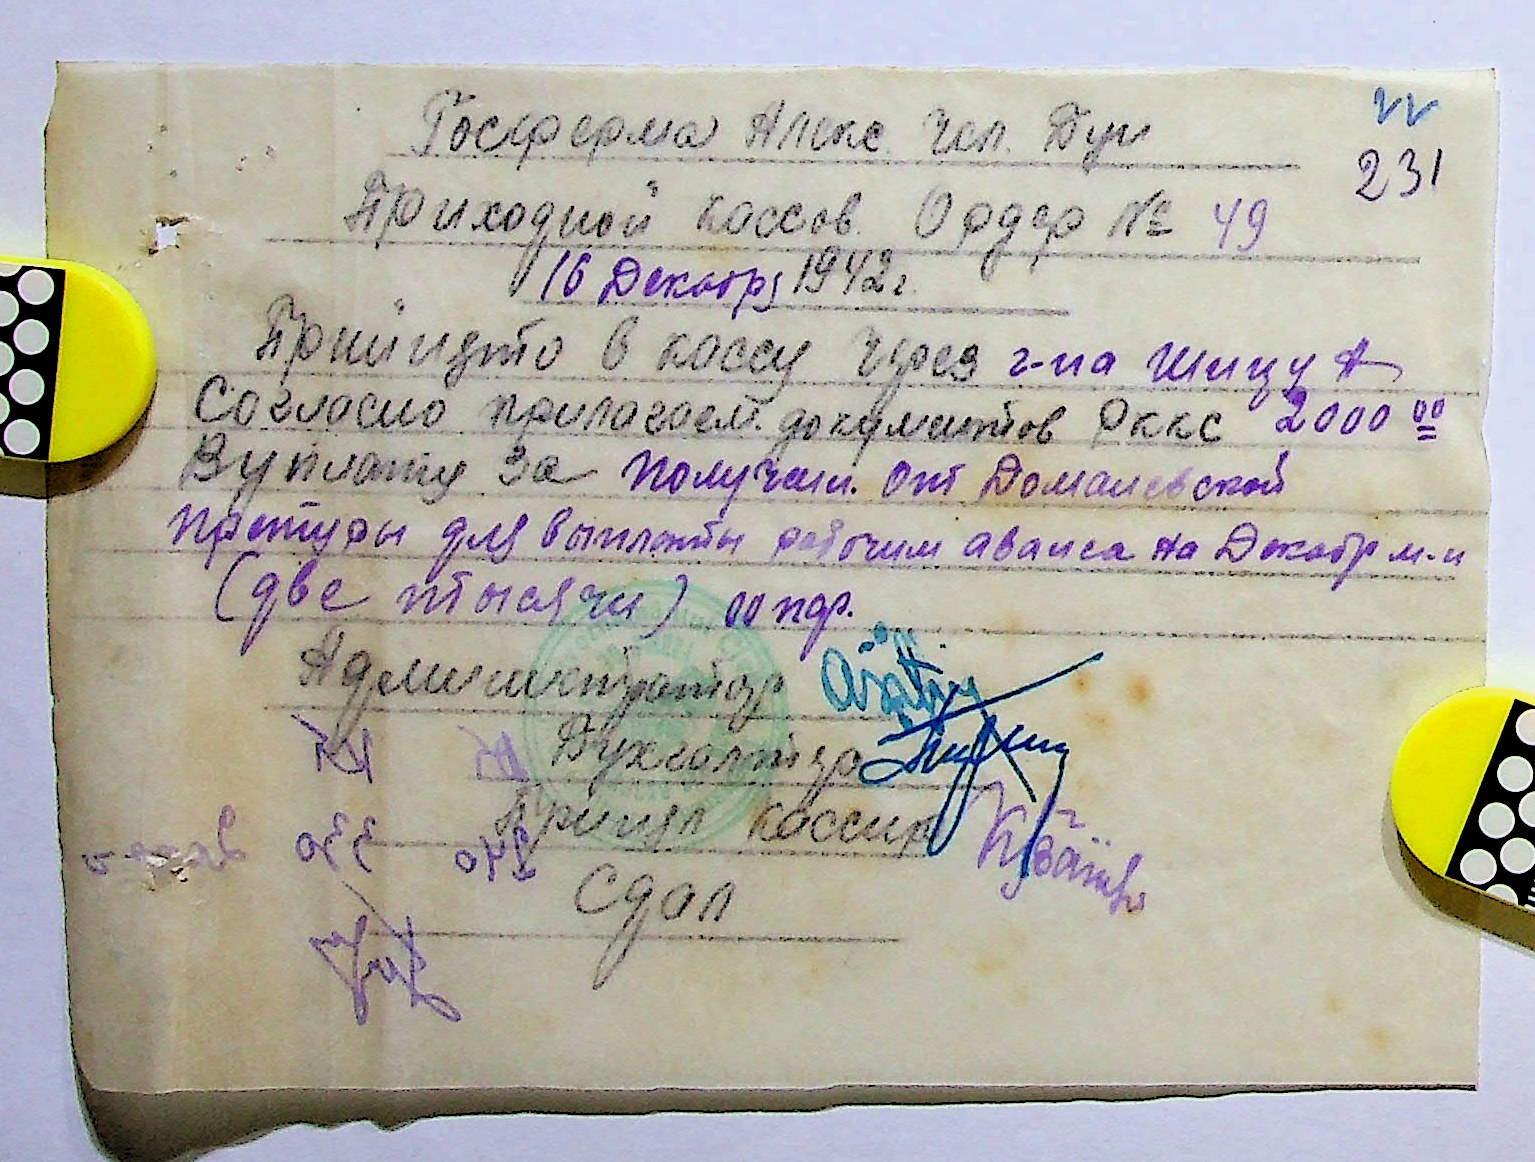 231
Госферма Алекс. Чел. Бун
Приходной кассов. Ордер № 49
16 Декабр 1942 г.
Принято в кассу через г-на Шицу А
Согласно прилагаем. документов РККС 2000 00
В уплату за получен. от Доманевской
претуры для выплаты рабочим аванса на Декабр м-ц
(две тысячи) 00 пф.
Администратор
Бухгалтер
Принял кассир
Сдал